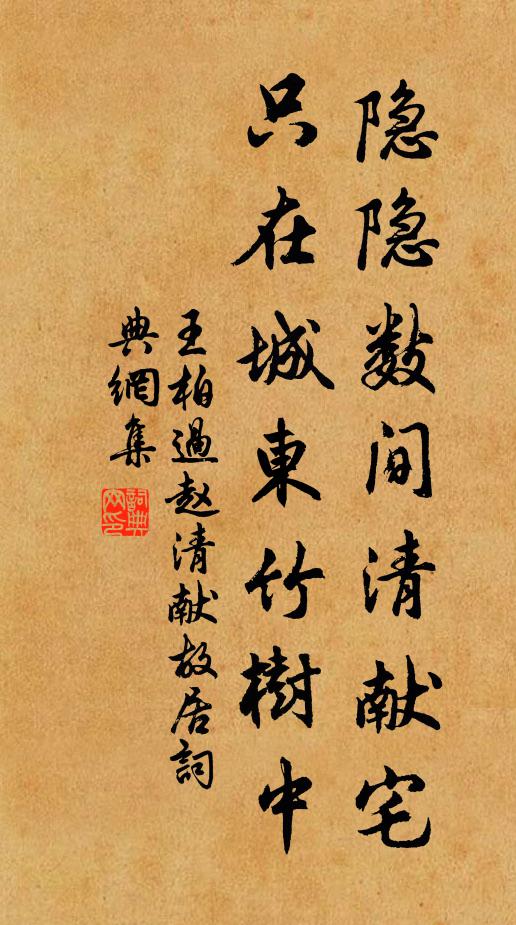 隐隐数间清献宅
只在城東竹樹中
王柏過赵清献故居詞
典網集
詞典
网印